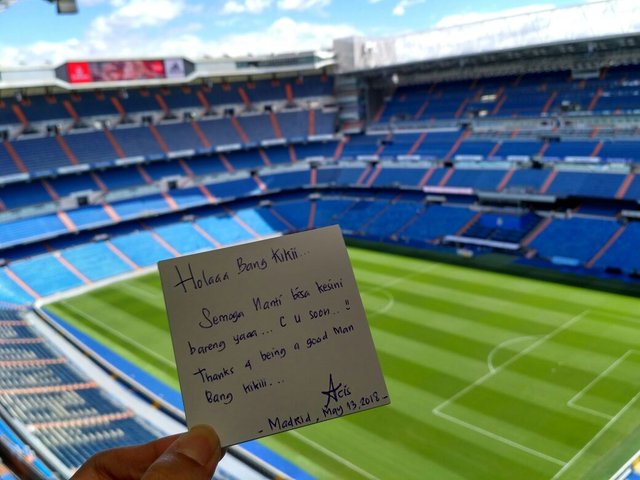 Holaaa Bang Kikii...
Semoga Nanti bisa kesini
bareng yaaa... C U soon..!!
Thanks 4 being a good Man
Bang Kikiii...
Acis
- Madrid, May 13, 2018 -